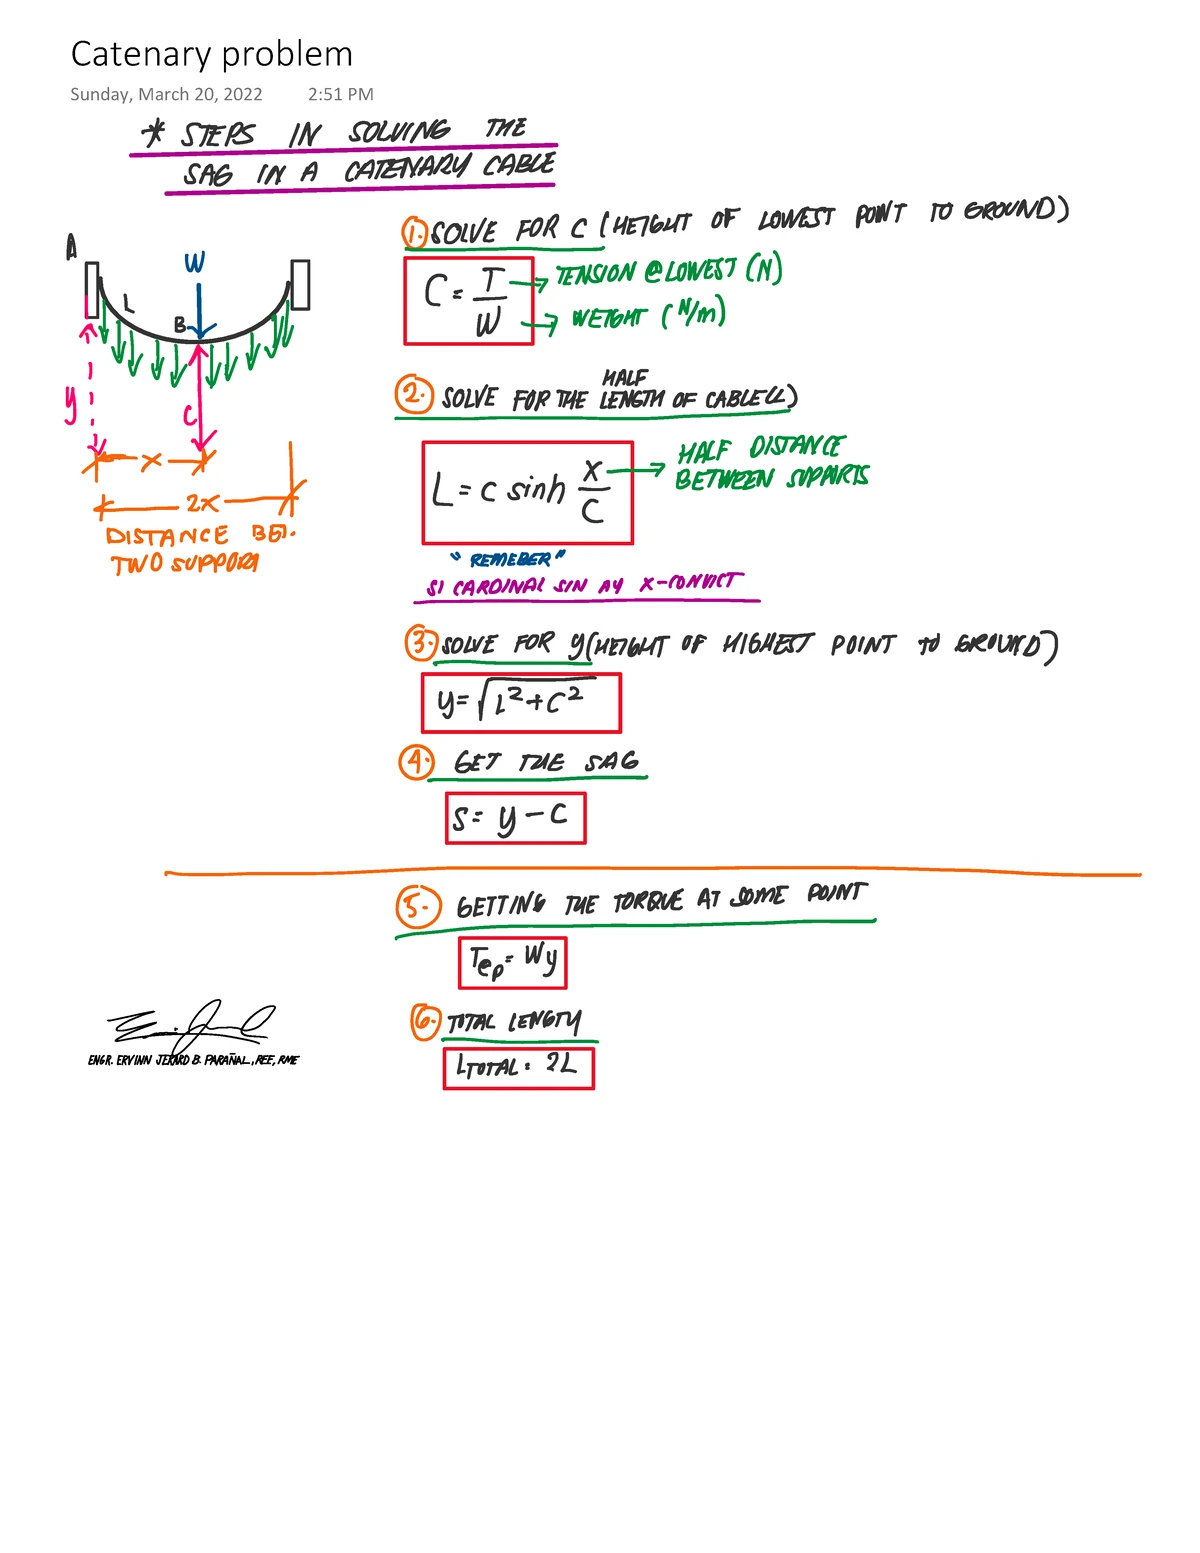 Catenary problem
Sunday, March 20, 2022 2:51 PM
* STEPS IN SOLVING THE
SAG IN A CATENARY CABLE
A
W
L
B
y
C
x
2x
DISTANCE BET.
TWO SUPPORT
1. SOLVE FOR C (HEIGHT OF LOWEST POINT TO GROUND)
C = T/W
TENSION @ LOWEST (N)
WEIGHT (N/m)
2. SOLVE FOR THE HALF LENGTH OF CABLE (L)
L = c sinh x/c
HALF DISTANCE
BETWEEN SUPPORTS
"REMEBER"
SI CARDINAL SIN AY X-CONVICT
3. SOLVE FOR y (HEIGHT OF HIGHEST POINT TO GROUND)
y = √L²+C²
4. GET THE SAG
S = y - C
5. GETTING THE TORQUE AT SOME POINT
T@p = Wy
6. TOTAL LENGTH
LTOTAL = 2L
ENGR. ERVINN JERARD B. PARAÑAL, REE, RME